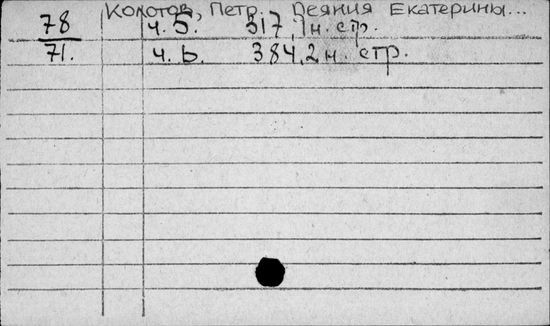 78 Колотов, Петр. Деяния Екатерины...
71. ч. 5. 317, 1 н. стр.
ч. 6. 384, 2 н. стр.